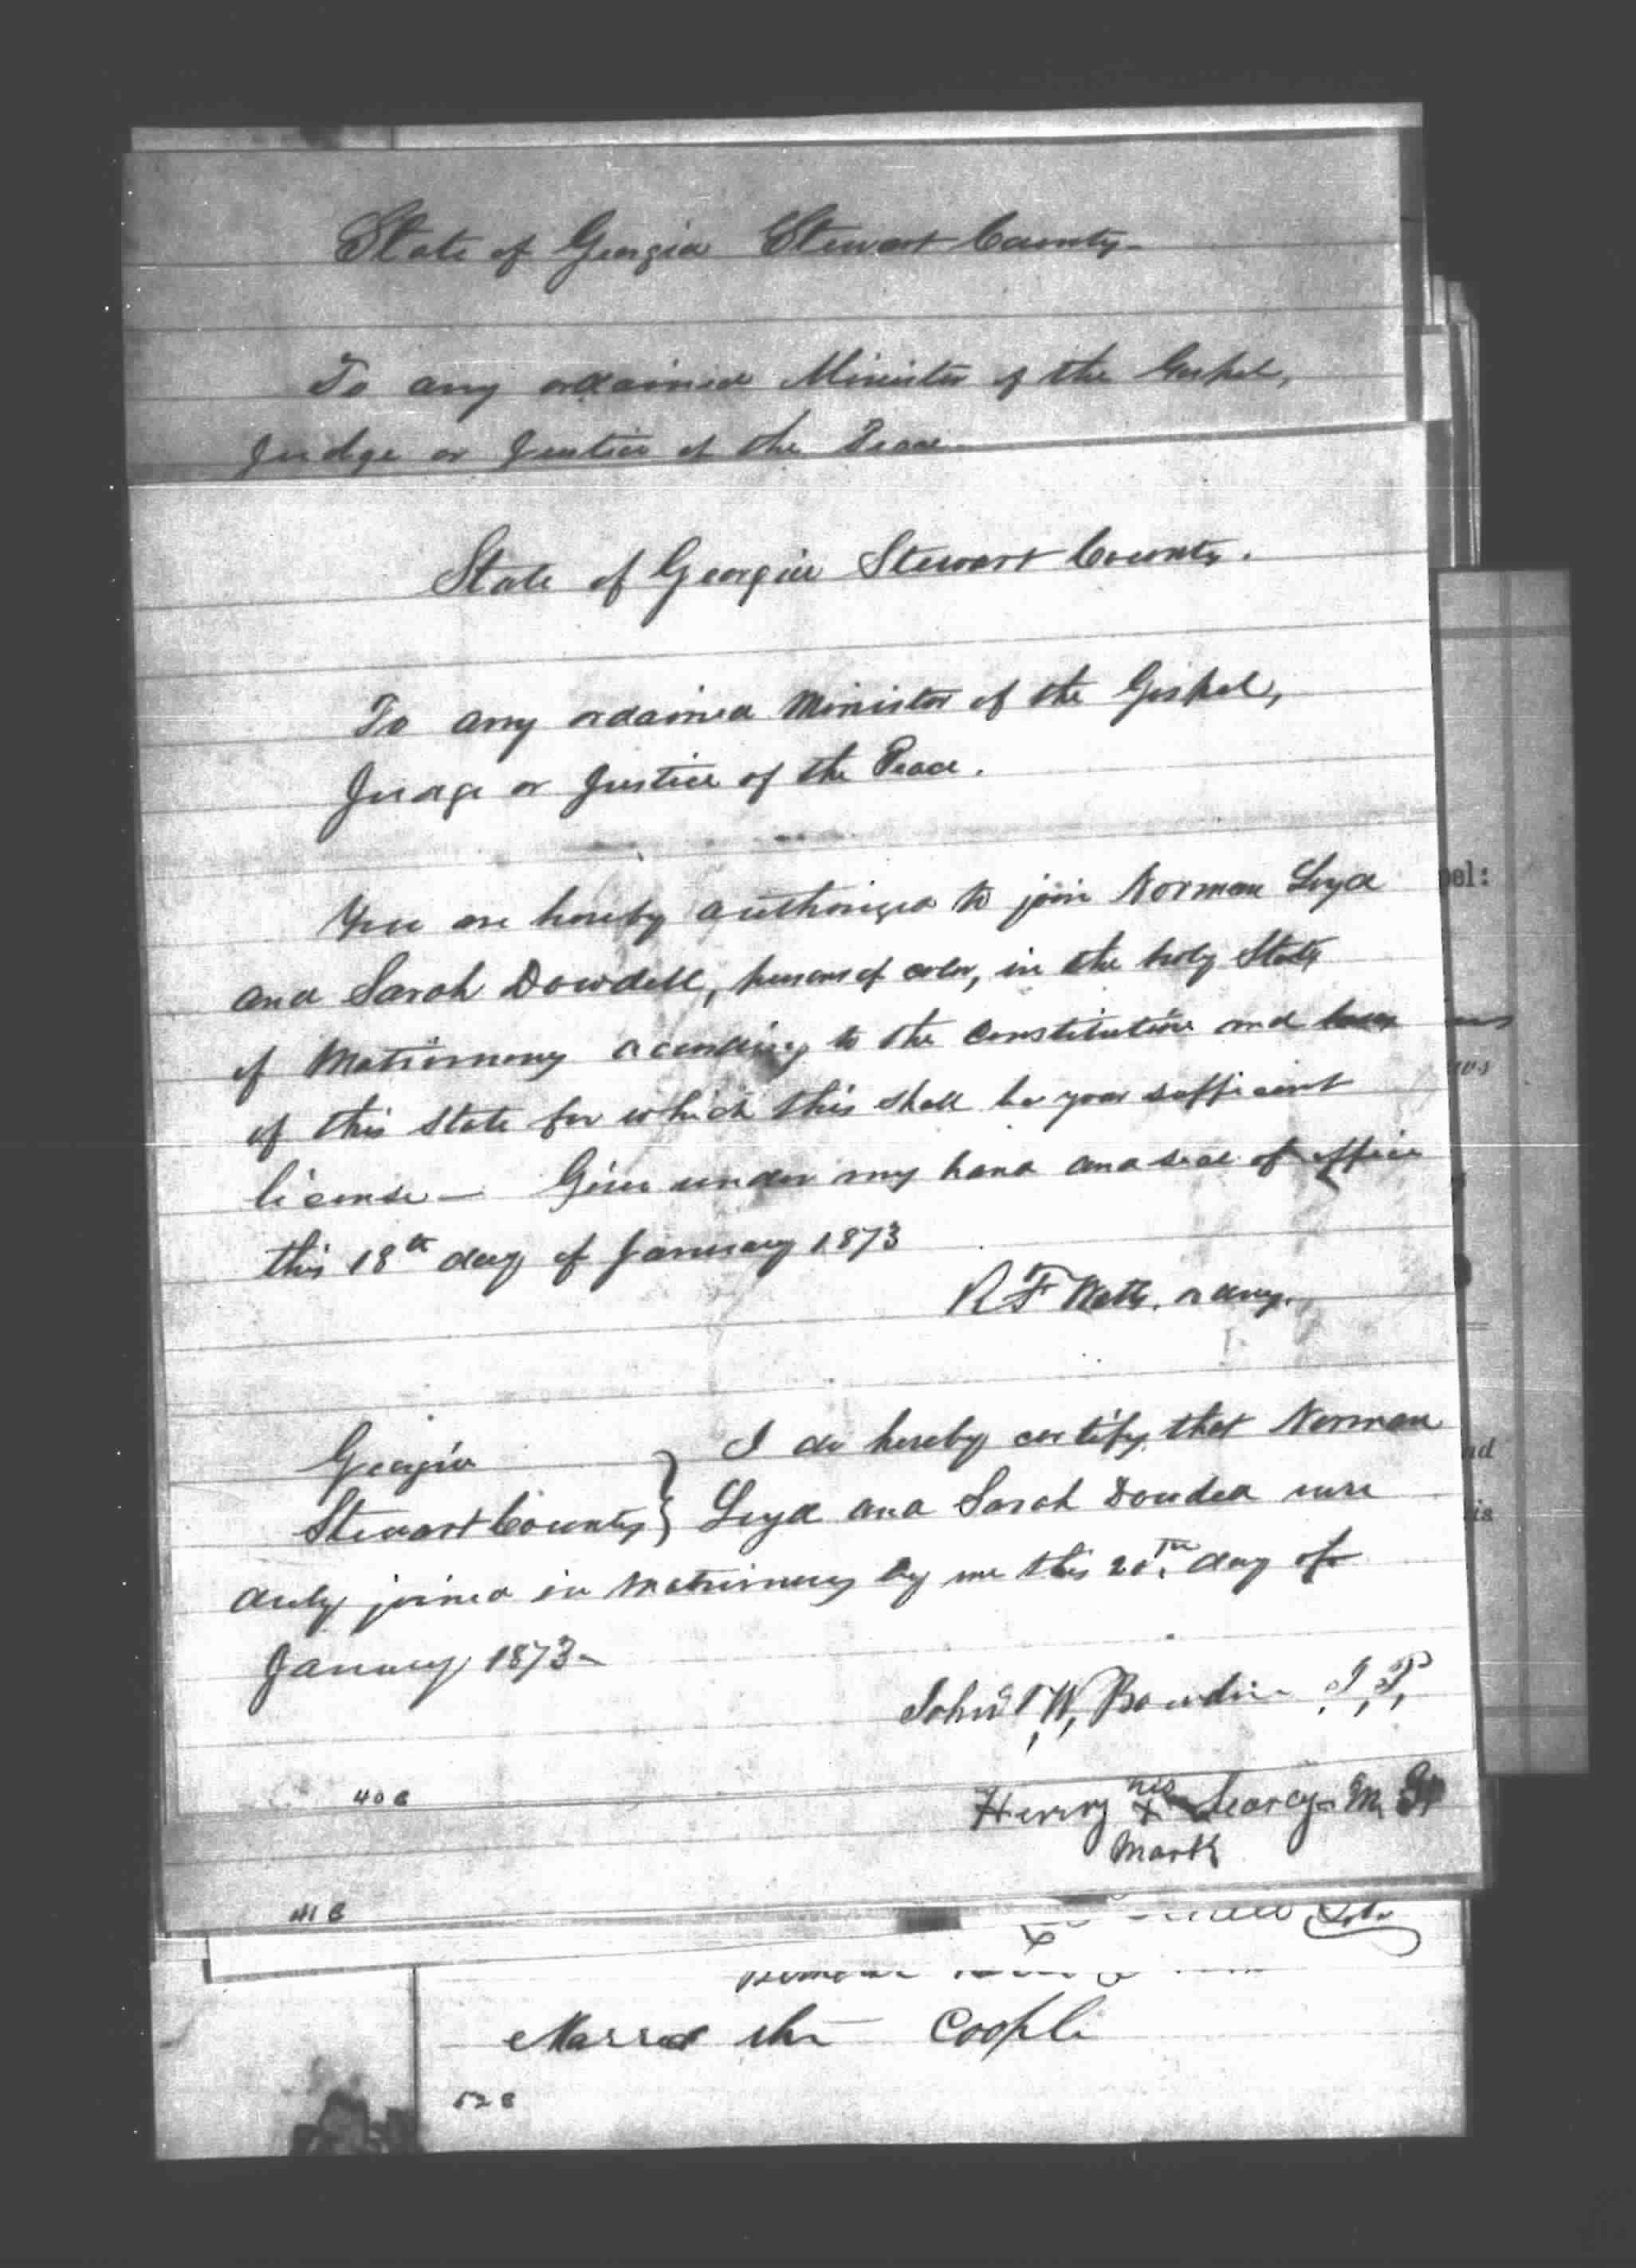 State of Georgia Stewart County
To any ordained Minister of the Gospel,
Judge or Justice of the Peace
State of Georgia Stewart County.
To any ordained Minister of the Gospel,
Judge or Justice of the Peace.
You are hereby authorized to join Norman Loyd
and Sarah Dowdell, persons of color, in the holy State
of Matrimony according to the constitution and laws
of this State for which this shall be your sufficient
license — Given under my hand and seal of office
this 18th day of January 1873
R F Watts. ordny.
Georgia } I do hereby certify that Norman
Stewart County } Loyd and Sarah Doudea were
duly joined in matrimony by me this 20th day of
January 1873 -
John W, Bowdin J, P,
40 B
Henry his x Searcy M G
mark
41 B
Marred the Coople
52 B
pel:
nd
is